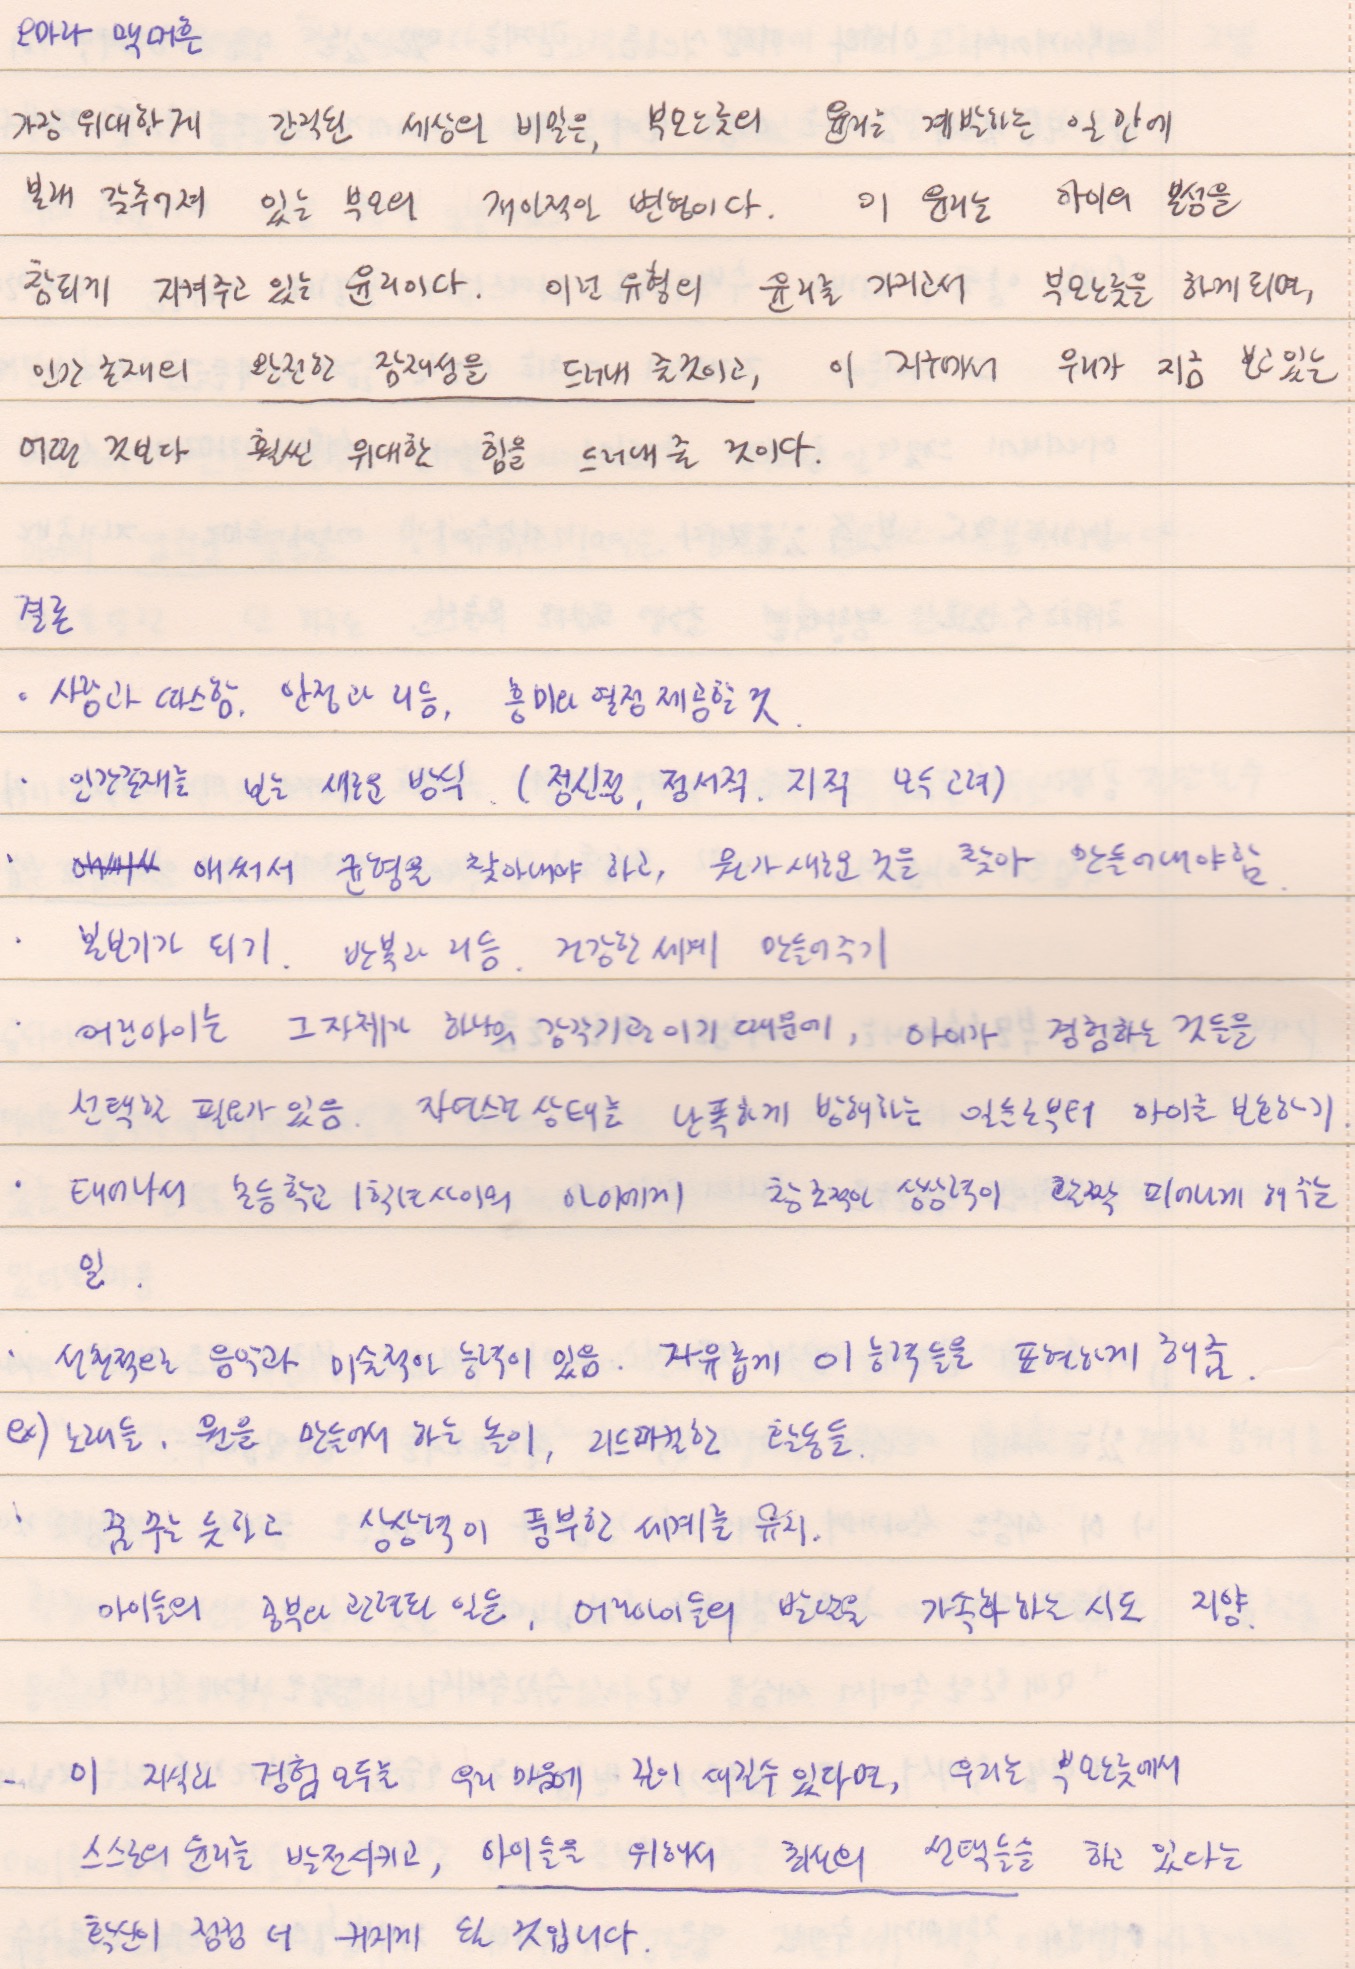 오마라 맥머흔
가장 위대하게 간직된 세상의 비밀은, 부모노릇의 윤리를 계발하는 일 안에
본래 갖추어져 있는 부모의 개인적인 변형이다. 이 윤리는 아이의 본성을
참되게 지켜주고 있는 윤리이다. 이런 유형의 윤리를 가지고서 부모노릇을 하게 되면,
인간 존재의 완전한 잠재성을 드러내 줄것이고, 이 지구에서 우리가 지금 보고 있는
어떤 것보다 훨씬 위대한 힘을 드러내 줄 것이다.
결론
· 사랑과 따스함, 안정과 리듬, 흥미와 열정 제공할 것.
· 인간존재를 보는 새로운 방식. (정신적, 정서적, 지적 모두 고려)
· 애써서 애써서 균형을 찾아내야 하고, 뭔가 새로운 것을 찾아 만들어내야 함.
· 본보기가 되기. 반복과 리듬. 건강한 세계 만들어주기
· 어린아이는 그 자체가 하나의 감각기관이기 때문에, 아이가 경험하는 것들을
선택할 필요가 있음. 자연스런 상태를 난폭하게 방해하는 일들로부터 아이를 보호하기.
· 태어나서 초등학교 1학년 사이의 아이에게 창조적인 상상력이 활짝 피어나게 해주는
일.
· 선천적으로 음악과 미술적인 능력이 있음. 자유롭게 이 능력들을 표현하게 해줌.
ex) 노래들, 원을 만들어서 하는 놀이, 리드미컬한 활동들.
· 꿈꾸는 듯하고 상상력이 풍부한 세계를 유지.
아이들의 공부와 관련된 일들, 어린아이들의 발달을 가속화 하는 시도 지양.
- 이 지식과 경험 모두를 우리 마음에 깊이 새길수 있다면, 우리는 부모노릇에서
스스로의 윤리를 발전시키고, 아이들을 위해서 최선의 선택들을 하고 있다는
확신이 점점 더 커지게 될 것입니다.